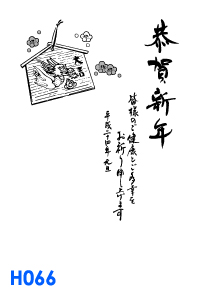 恭賀新年
皆様のご健康とご多幸を
お祈り申し上げます
平成二十四年 元旦
大吉
H066